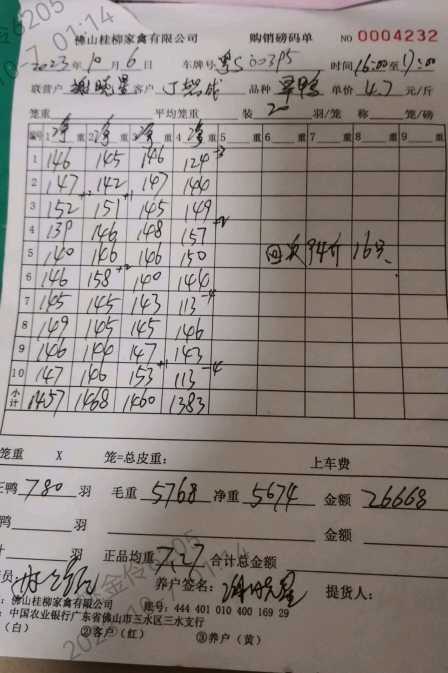 佛山桂柳家禽有限公司 购销磅码单 NO 0004232
2023年10月6日 车牌号: 粤S00395 时间16:00至17:00
联营户 谢晓星 客户 品种 单价 4.7 元/斤
笼重 平均笼重 装 20 羽/笼 称 笼/磅
编号 1 净重 2 净重 3 净重 4 净重 5 重 6 重 7 重 8 重 9 重
1 146 145 146 124 -3
2 147 +2 142 +1 147 140
3 152 151 145 149
4 139 146 148 157
5 140 146 146 150
6 146 158 +2 140 146
7 145 145 143 113 -4
8 149 145 145 146
9 146 140 147 143
10 147 146 153 +1 113 -4
小计 1457 1468 1460 1383
16只
笼重 X 笼=总皮重: 上车费
正鸭 780 羽 毛重 5768 净重 5674 金额 26668
鸭 羽 金额
计 羽 正品均重 7.27 合计总金额
员: 养户签名: 谢晓星 提货人:
: 佛山桂柳家禽有限公司 账号: 444 401 010 400 169 29
: 中国农业银行广东省佛山市三水区三水支行
(白) ②客户(红) ③养户(黄)